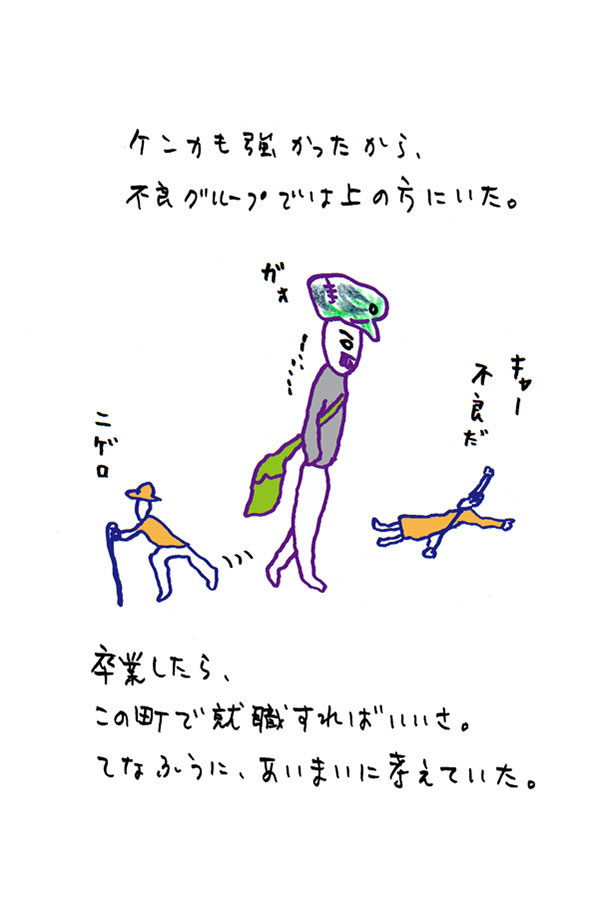 ケンカも強かったから、
不良グループでは上の方にいた。
ガォ
キャー
不良だ
ニゲロ
卒業したら、
この町で就職すればいいさ。
てなふうに、あいまいに考えていた。